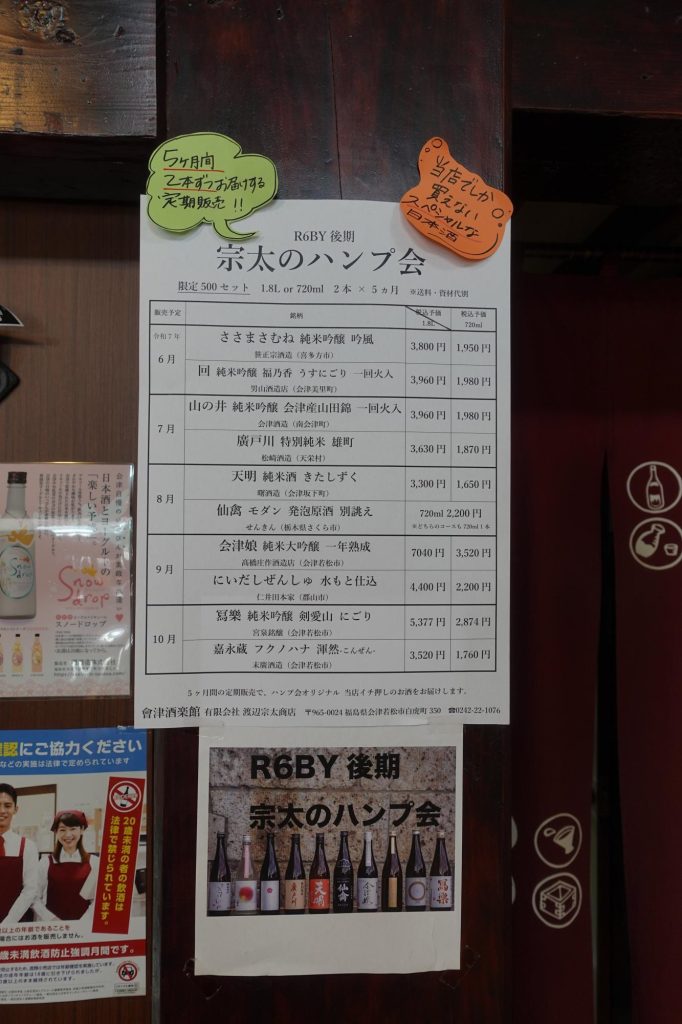 5ヶ月間
2本ずつお届けする
定期販売!!
当店でしか
買えない
スペシャルな
日本酒
R6BY 後期
宗太のハンプ会
限定 500 セット 1.8L or 720ml 2 本 × 5 ヵ月 ※送料・資材代別
販売予定 銘柄 税込予価 1.8L 税込予価 720ml
令和7年
6月
ささまさむね 純米吟醸 吟風 3,800 円 1,950 円
笹正宗酒造（喜多方市）
回 純米吟醸 福乃香 うすにごり 一回火入 3,960 円 1,980 円
男山酒造店（会津美里町）
7月
山の井 純米吟醸 会津産山田錦 一回火入 3,960 円 1,980 円
会津酒造（南会津町）
廣戸川 特別純米 雄町 3,630 円 1,870 円
松崎酒造（天栄村）
8月
天明 純米酒 きたしずく 3,300 円 1,650 円
曙酒造（会津坂下町）
仙禽 モダン 発泡原酒 別誂え 720ml 2,200 円
せんきん（栃木県さくら市） ※どちらのコースも 720ml 1 本
9月
会津娘 純米大吟醸 一年熟成 7040 円 3,520 円
高橋庄作酒造店（会津若松市）
にいだしぜんしゅ 水もと仕込 4,400 円 2,200 円
仁井田本家（郡山市）
10月
冩樂 純米吟醸 剣愛山 にごり 5,377 円 2,874 円
宮泉銘醸（会津若松市）
嘉永蔵 フクノハナ 渾然-こんぜん- 3,520 円 1,760 円
末廣酒造（会津若松市）
5ヶ月間の定期販売で、ハンプ会オリジナル 当店イチ押しのお酒をお届けします。
會津酒楽館 有限会社 渡辺宗太商店 〒965-0024 福島県会津若松市白虎町 350 ☎0242-22-1076
R6BY 後期
宗太のハンプ会
天明
仙禽
冩樂
日本酒とヨーグルトの
Snow
drop
スノードロップ
確認にご協力ください
などの実施は法律で定められています
20歳未満の者の飲酒は
法律で禁じられています。
以上の年齢であることを
場合にはお酒を販売しません。
歳未満飲酒防止強調月間です。